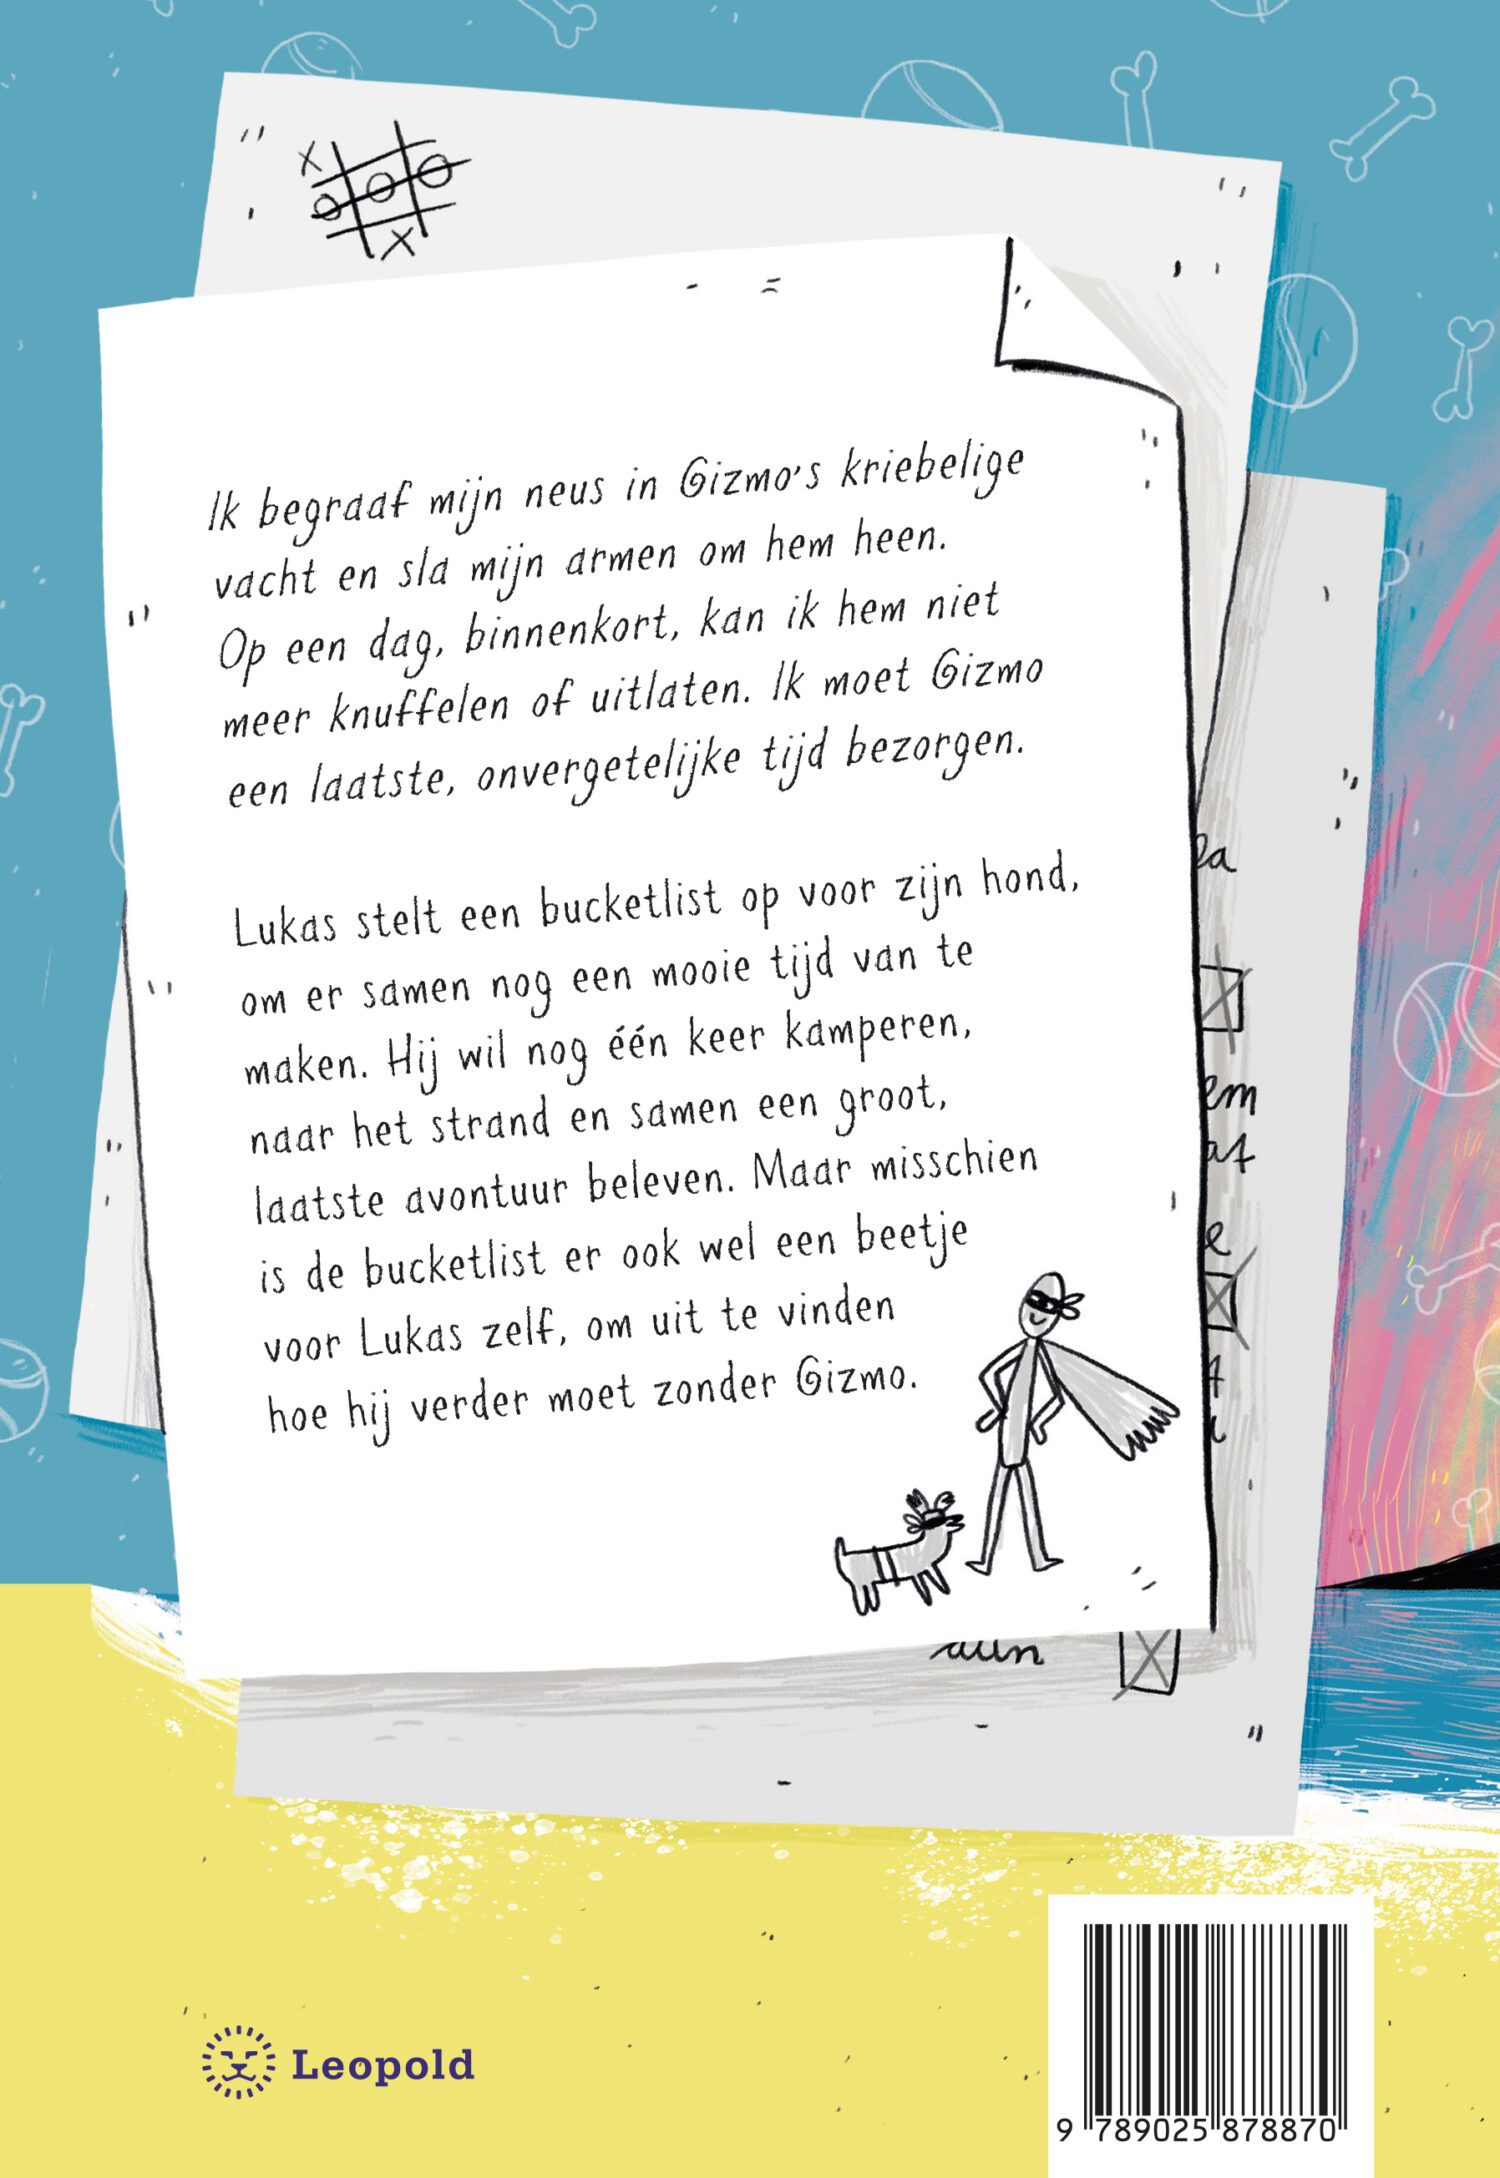 Ik begraaf mijn neus in Gizmo's kriebelige
vacht en sla mijn armen om hem heen.
Op een dag, binnenkort, kan ik hem niet
meer knuffelen of uitlaten. Ik moet Gizmo
een laatste, onvergetelijke tijd bezorgen.
Lukas stelt een bucketlist op voor zijn hond,
om er samen nog een mooie tijd van te
maken. Hij wil nog één keer kamperen,
naar het strand en samen een groot,
laatste avontuur beleven. Maar misschien
is de bucketlist er ook wel een beetje
voor Lukas zelf, om uit te vinden
hoe hij verder moet zonder Gizmo.
Leopold
9 789025 878870